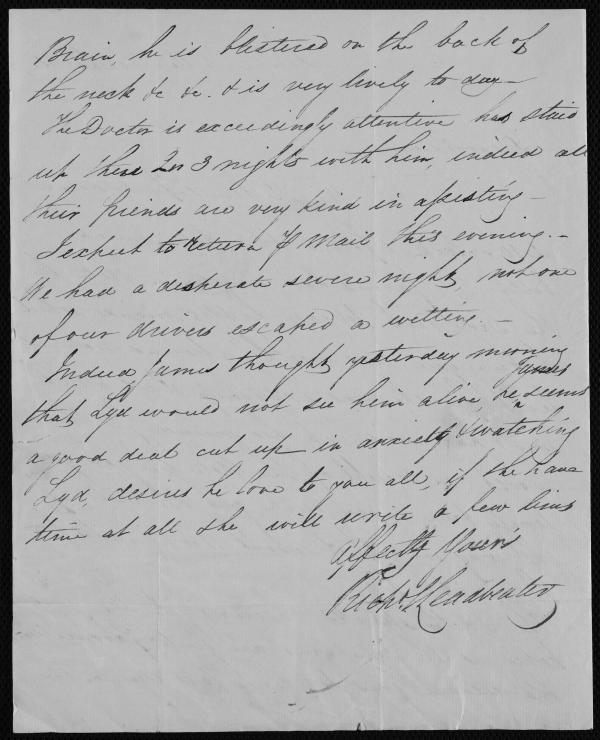 Brain, he is blistered on the back of
the neck &c &c. & is very lively to day—
The Doctor is exceedingly attentive has staid
up these 2 or 3 nights with him, indeed all
their friends are very kind in assisting—
I expect to return ⅌ Mail this evening.—
We had a desperate severe night, not one
of our drivers escaped a wetting.—
Indeed James thought yesterday morning
that Lyd would not see him alive, he James seems
a good deal cut up in anxiety & watching
Lyd, desires he love to you all, if she have
time at all she will write a few lines
affectly Yours
Richd. Leadbeater